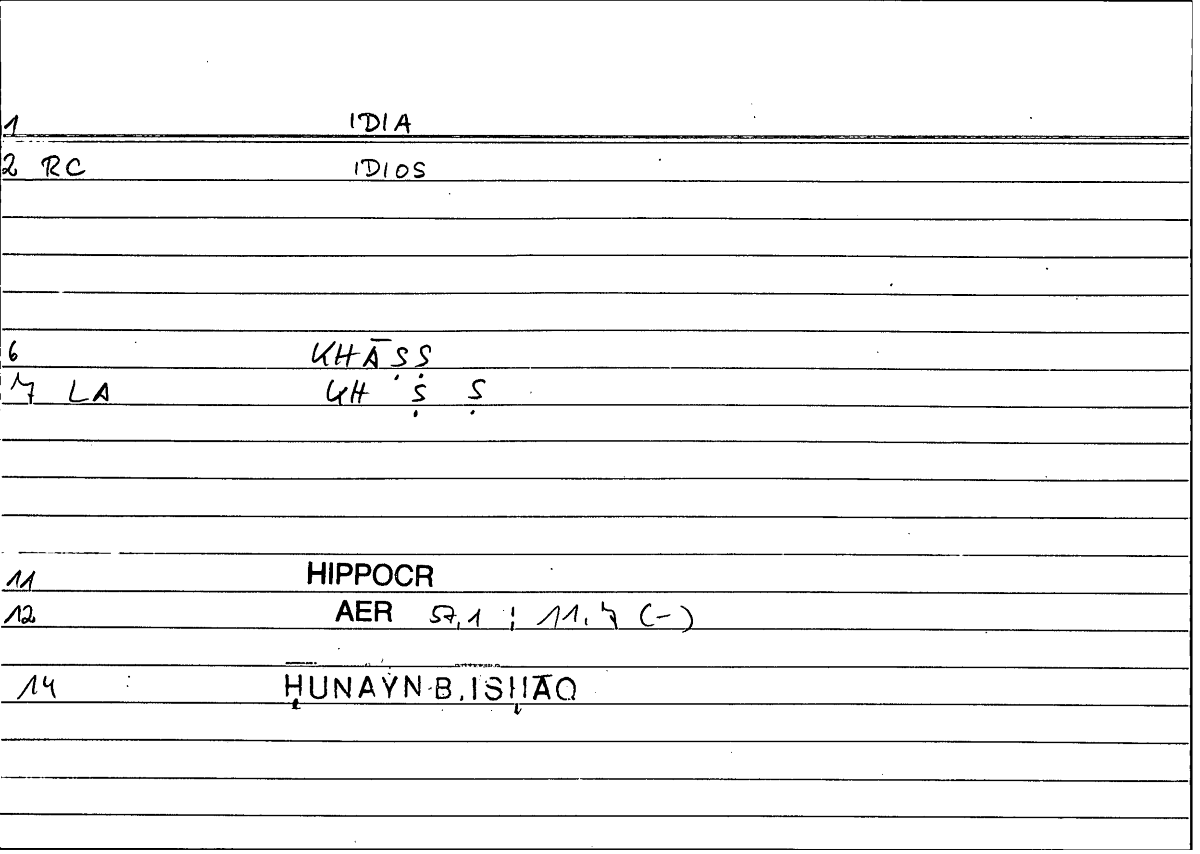 1 IDIA
2 RC IDIOS
6 KHĀṢṢ
7 LA KH Ṣ Ṣ
11 HIPPOCR
12 AER 57,1 ; 11,7 (-)
14 ḤUNAYN B. ISḤĀQ